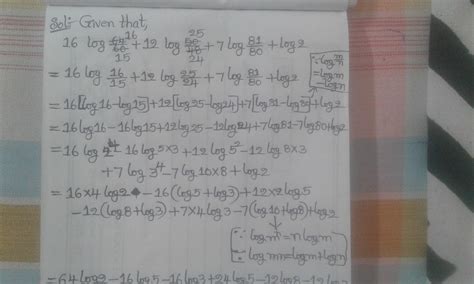 Sol:- Given that,
16 log 64/60 16/15 + 12 log 50/48 25/24 + 7 log 81/80 + log2
= 16 log 16/15 + 12 log 25/24 + 7 log 81/80 + log2
∵ log m/n = log m - log n
= 16[log16-log15]+12[log25-log24]+7[log81-log80]+log2
= 16log16-16log15+12log25-12log24+7log81-7log80+log2
= 16 log 2^4 - 16 log 5×3 + 12 log 5^2 - 12 log 8×3
+ 7 log 3^4 - 7 log 10×8 + log2
= 16×4 log2 - 16(log5+log3) + 12×2 log5
- 12(log8+log3) + 7×4 log3 - 7(log10+log8) + log2
∵ log m^n = n log m
∵ log mn = log m + log n
= 64log2 - 16log5 - 16log3 + 24log5 - 12log8 - 12log3